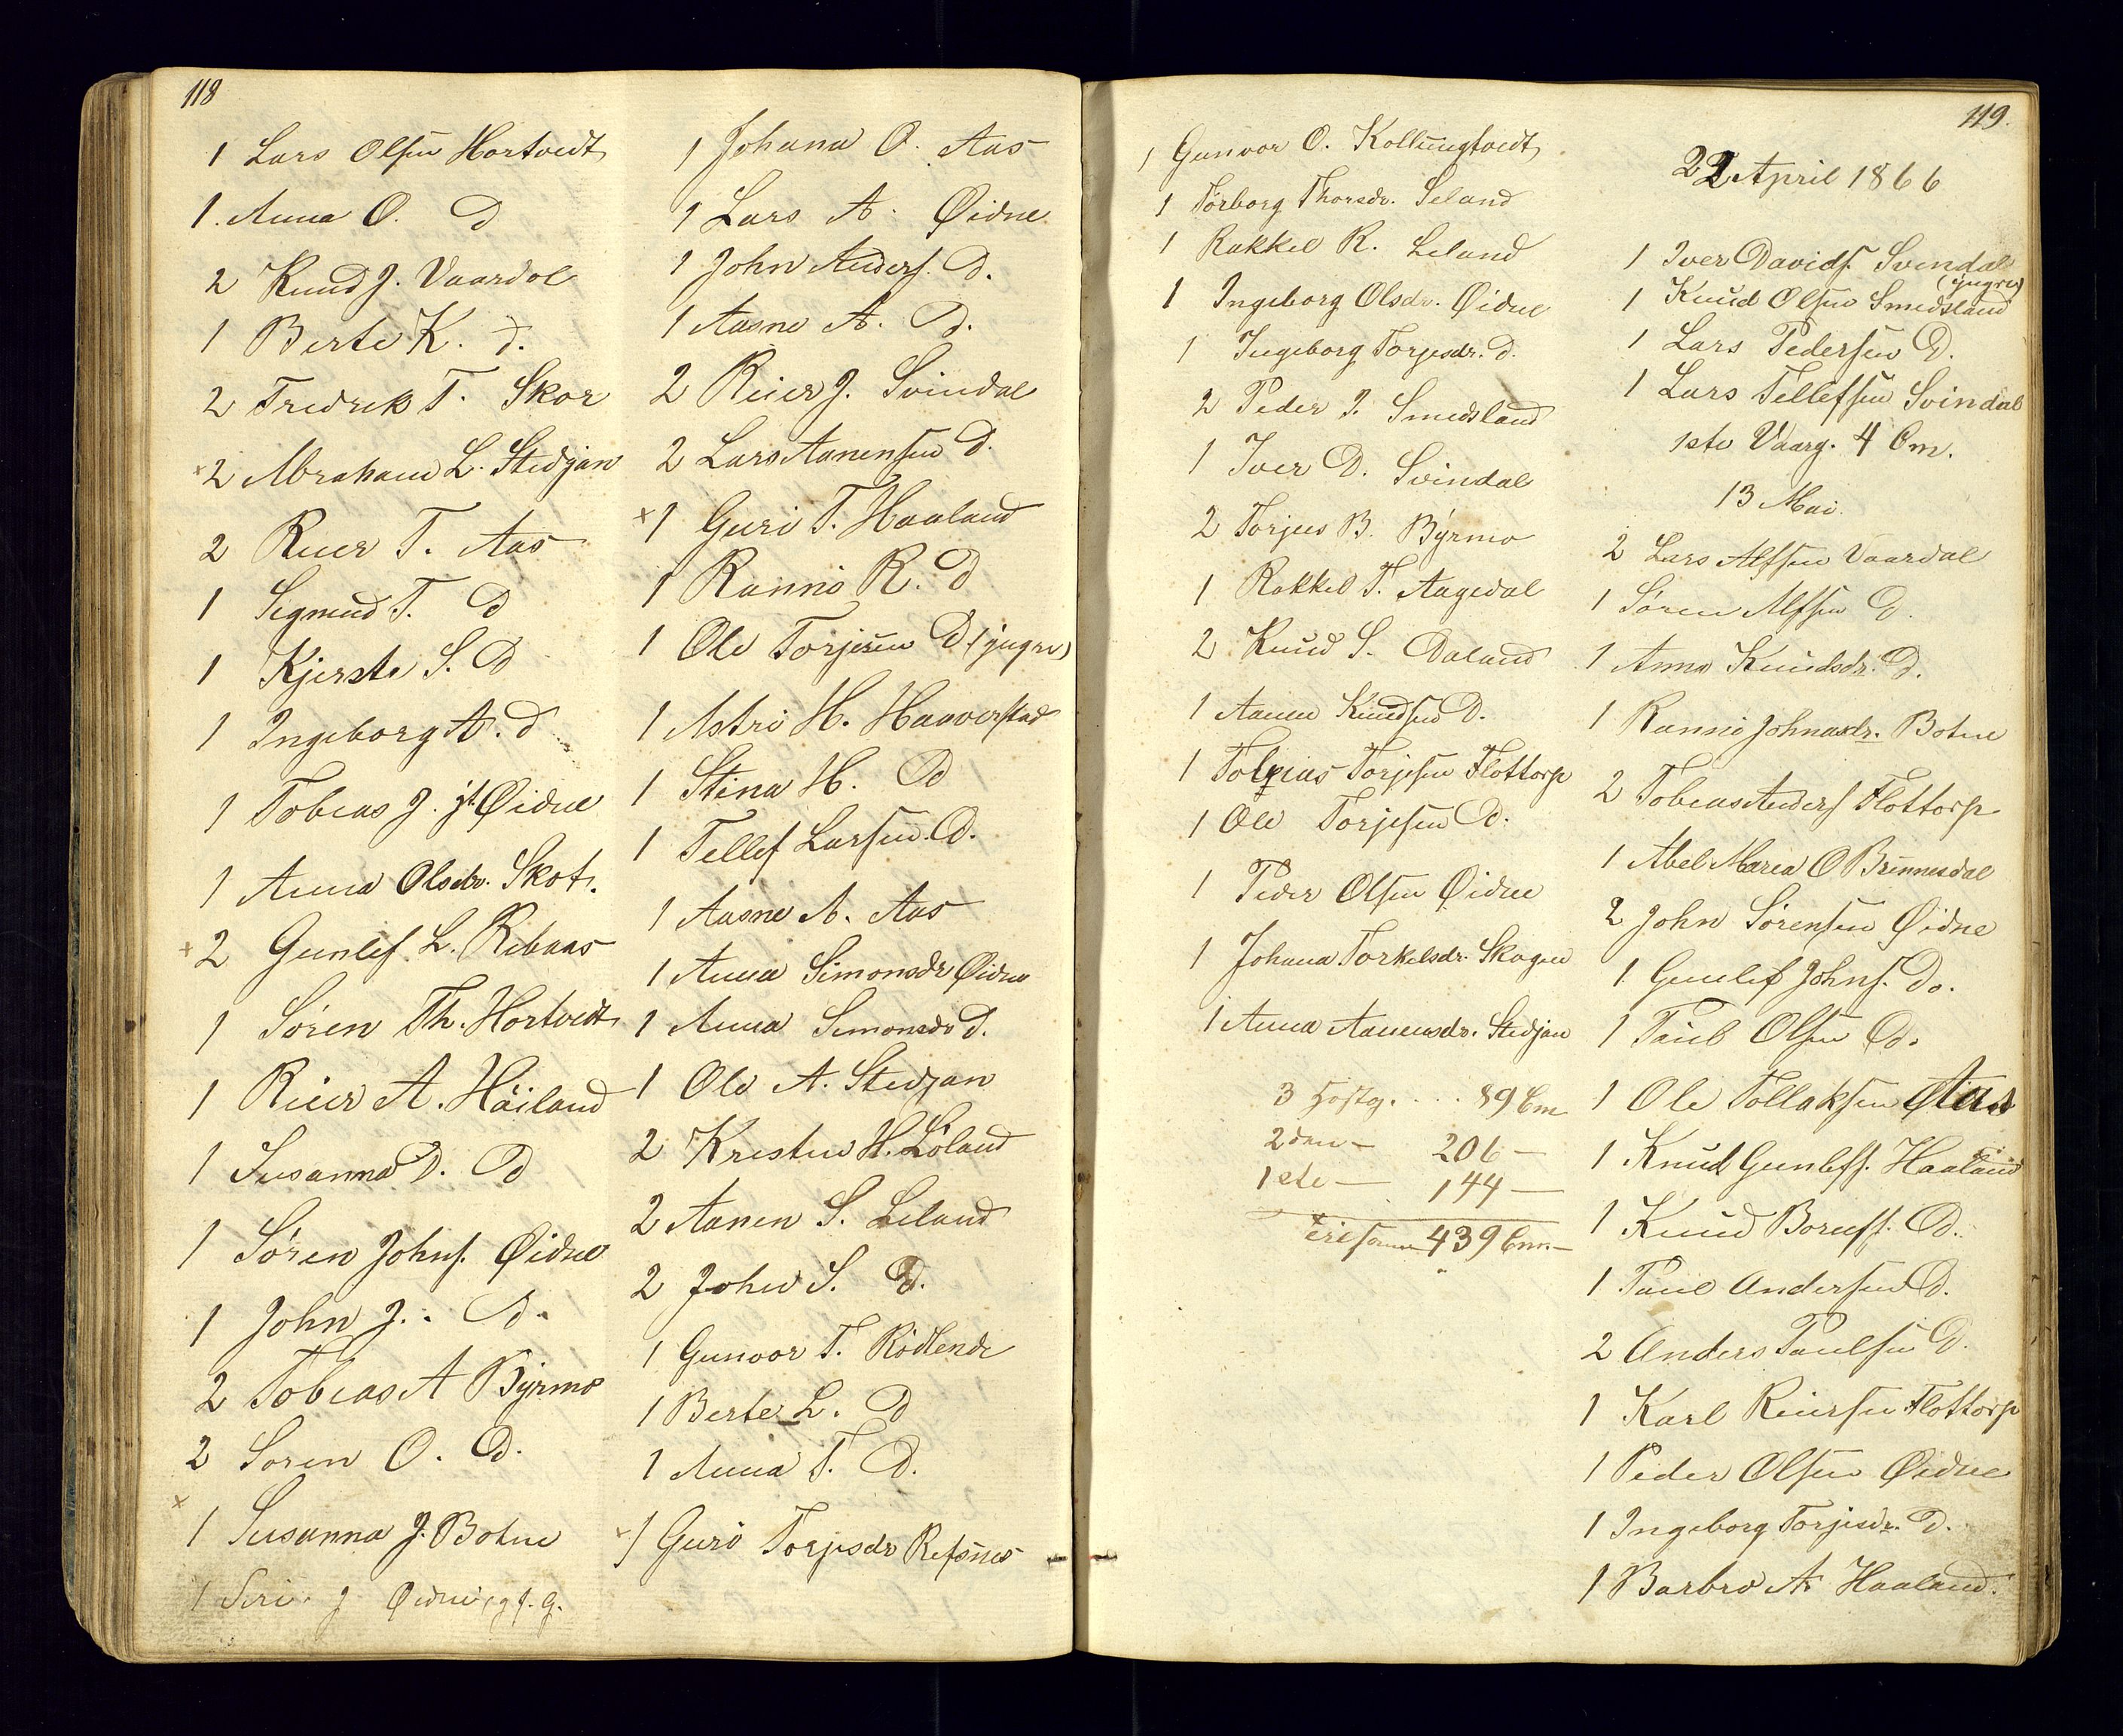 118
1 Lars Olsen Hortvedt
1. Anna O. D
2 Knud J. Vaardal
1 Berte K. D.
2 Fredrek T. Skor
x 2 Abraham L. Stedjan
2 Reier T. Aas
1 Segmud T. D
1 Kjerste S. D
1 Ingeborg A. D
1 Tobias J. Øidne
1 Anna Olsdr. Skot.
x 2 Gunlef L. Rebaas
1 Søren Th. Hortvedt
1 Reier A. Høiland
1 Susanna D. D
1 Søren Johns. Øidne
1 John J. D.
2 Tobias A Byrmo
2 Soren O. D.
x 1 Susanna J. Botne
1 Seri J Øidne
1 Johana O. Aas
1 Lars A. Øidne
1 John Anders. D.
1 Aasne A. D.
2 Reier J. Svindal
2 Lars Aanensen D.
x 1 Guri T. Haaland
1 Ranni R. D
1 Ole Torjesen D (yngre)
1 Astri H. Haaverstad
1 Stina H. D
1 Tellef Larsen D.
1 Aasne A. Aas
1 Anna Simonsdr Øidne
1 Anna Simonsdr D.
1 Ole A. Stedjan
2 Kresten H. Løland
2 Aanen S. Leland
2 John S. D.
1 Gunvor T. Rødlende
1 Berte L. D
1 Anna T. D.
x 1 Guro Torjesdr Refsnes
119.
1 Gunvor O. Kollungtvedt
1 Torborg Thorsdr. Seland
1 Rakkel R. Leland
1 Ingeborg Olsdr. Øidne
1 Ingeborg Torjesdr. D.
2 Peder J. Smedsland
1 Iver D. Svindal
2 Torjus B. Byrmo
1 Rakkel T. Aagedal
2 Knud S. Daland
1 Aanen Knudsen D.
1 Tobias Torjesen Flottorp
1 Ole Torjesen D.
1 Peder Olsen Øidne
1 Johana Torkelsdr. Skogen
1 Anna Aanensdr. Stedjan
3 Høstg. . . . 89 Em
2den — 206 —
1ste — 144 —
439 Em. —
22 April 1866
1 Iver Davids. Svindal
(yngre)
1 Knud Olsen Smedsland
1 Lars Pedersen D.
1 Lars Tellefsen Svindal
1ste Vaarg. 4 Em.
13 Mai.
2 Lars Alfsen Vaardal
1 Søren Alfsen D.
1 Anna Knudsdr. D.
1 Ranni Johnasdr. Botne
2 Tobias Anders Flottorp
1 Abel Marea O Brennesdal
2 John Sørensen Øidne
1 Gunlef Johns. Do.
1 Paul Olsen D.
1 Ole Tollaksen Aas
1 Knud Gunlefs. Haaland
1 Knud Borufs. D.
1 Paul Andersen D.
2 Anders Paulsen D.
1 Karl Reiersen Flottorp
1 Peder Olsen Øidne
1 Ingeborg Torjesdr. D.
1 Barbro A. Haaland.